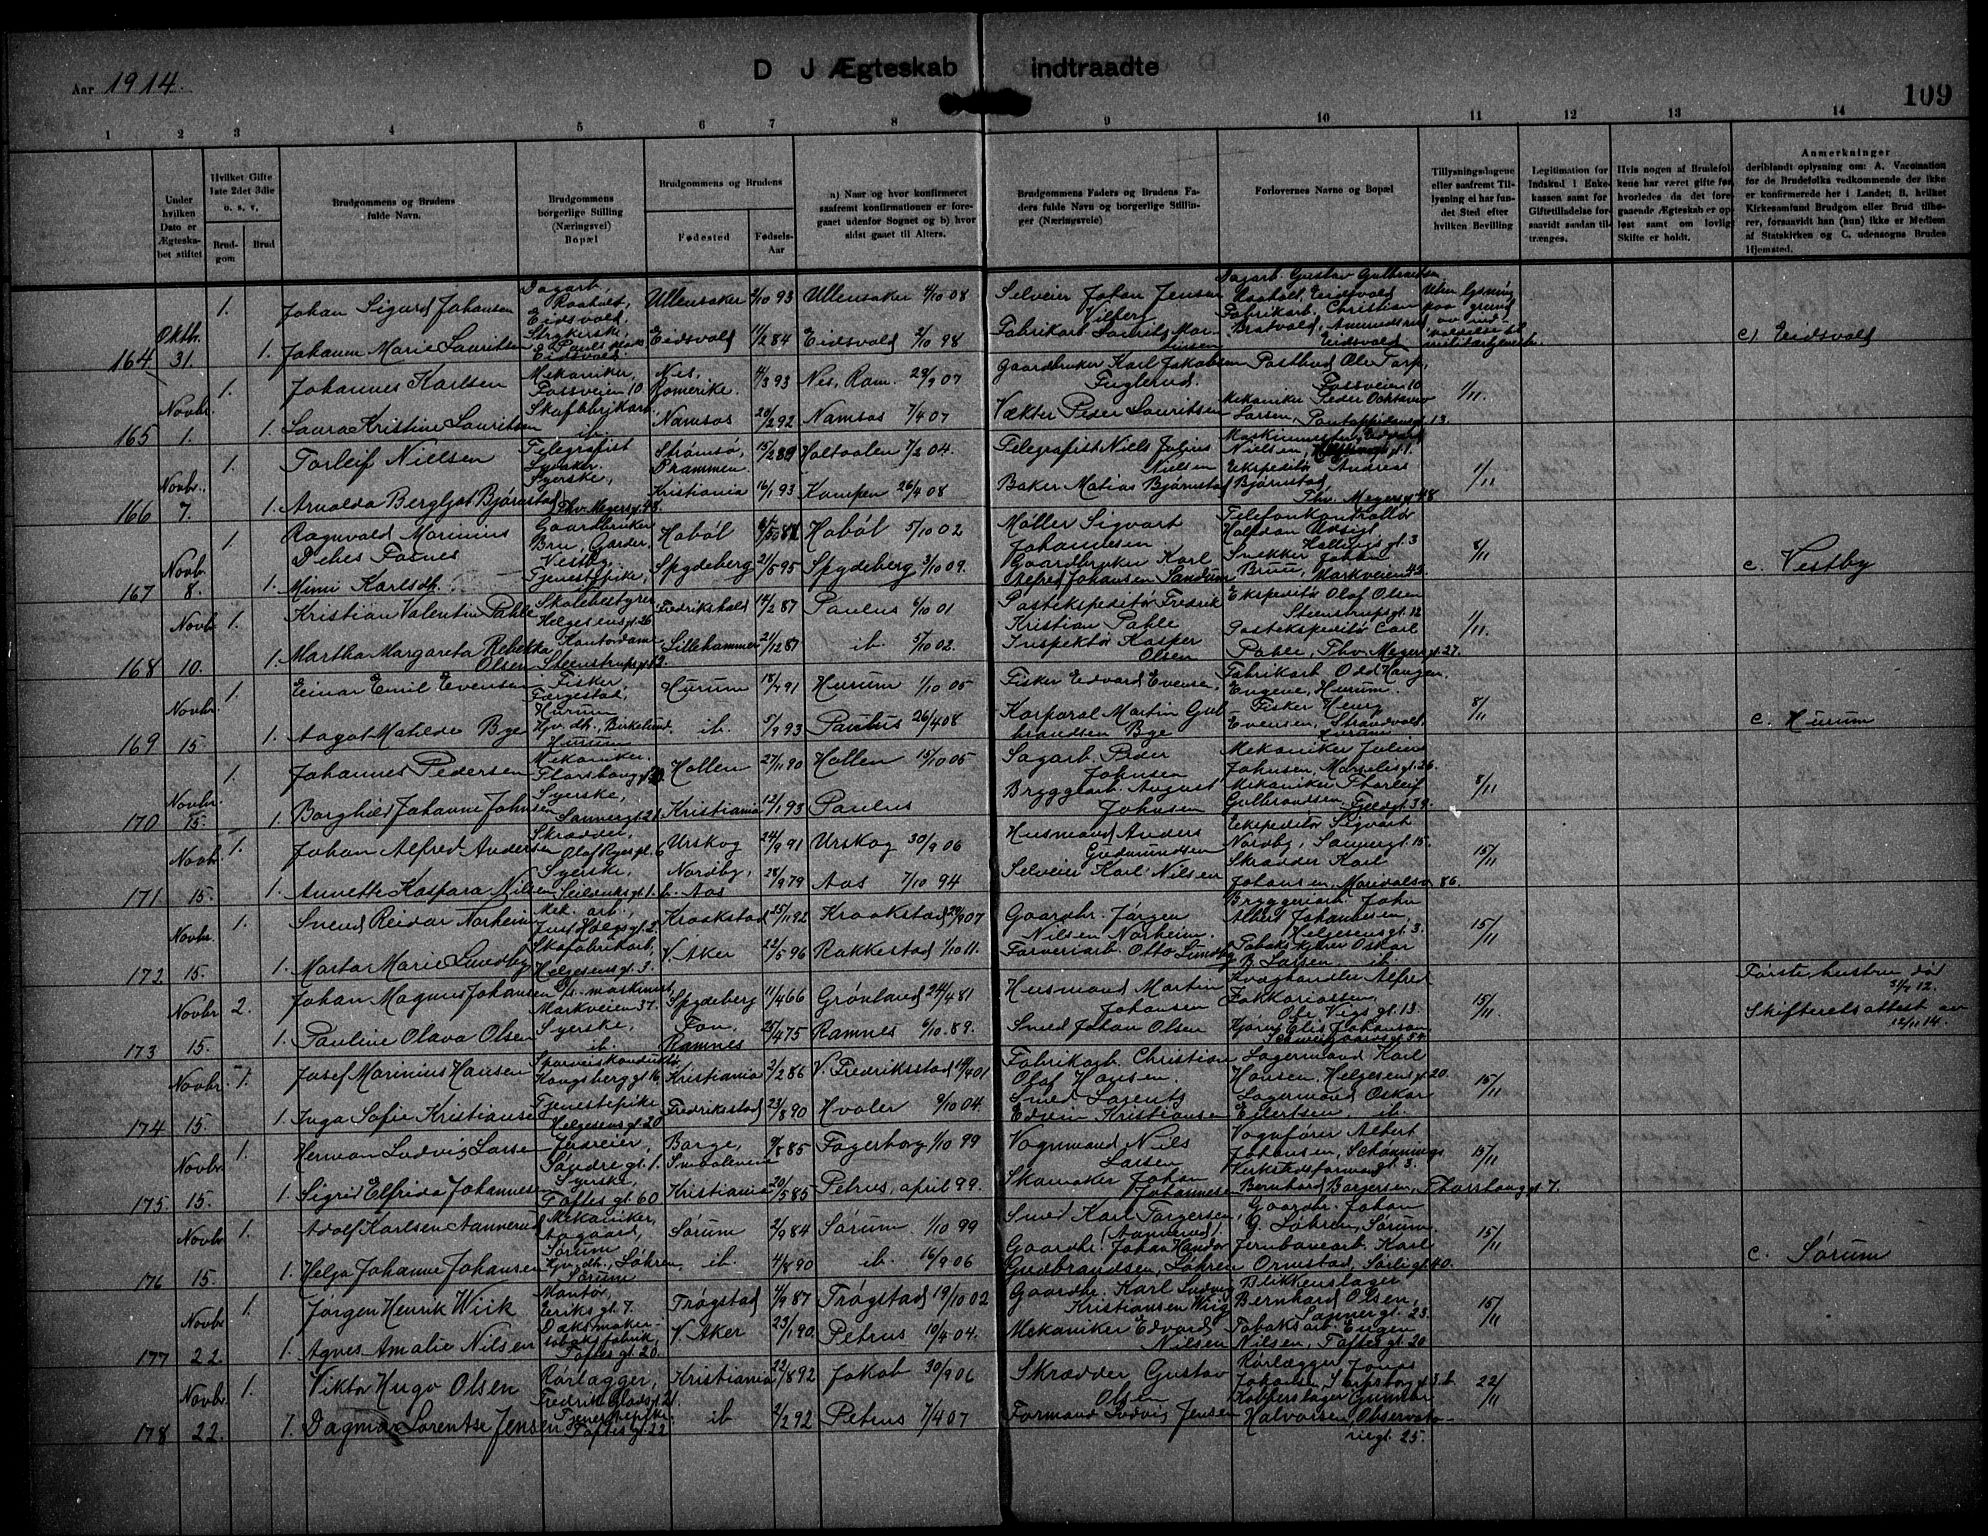 Aar 1914.
D J Ægteskab indtraadte
109
1 2 3 4 5 6 7 8 9 10 11 12 13 14
Under hvilken Dato er Ægteska-bet stiftet
Hvilket Gifte 1ste 2det 3die o. s. v,
Brud-gom
Brud
Brudgommens og Brudens fulde Navn.
Brudgommens borgerlige Stilling (Næringsvei) Bopæl
Brudgommens og Brudens
Fødested
Fødsels-Aar
a) Naar og hvor konfirmeret saafremt konfirmationen er fore-gaaet udenfor Sognet og b) hvor sidst gaaet til Alters.
Brudgommens Faders og Brudens Fa-ders fulde Navn og borgerlige Stillin-ger (Næringsveie)
Forlovernes Navne og Bopæl
Tillysningsdagene eller saafremt Til-lysning ei har fun-det Sted efter hvilken Bevilling
Legitimation for Indskud i Enke-kassen samt for Giftetilladelse for-saavidt saadan til-trænges.
Hvis nogen af Brudefol-kene har været gifte før, hvorledes da det fore-gaaende Ægteskab er op-løst samt om lovligt Skifte er holdt.
Anmerkninger
deriblandt oplysning om: A. Vaccination for de Brudefolks vedkommende der ikke er konfirmerede her i Landet; B. hvilket Kirkesamfund Brudgom eller Brud tilhø-rer, forsaavidt han (hun) ikke er Medlem af Statskirken og C. udensogns Brudes Hjemsted.
164 Oktbr. 31.
1. Johan Sigurd Johansen Dagarb., Raaholt, Eidsvold. Ullensaker 2/10 93 Ullensaker 4/10 08 Selveier Johan Jensen Dagarb. Gustav Gulbrandsen Raaholt, Eidsvold
1. Johanne Marie Lauritsen Strykerske, Eidsvold. Eidsvold 11/2 84 Eidsvold 2/10 98 Fabrikarb. Laurits Fabrikarb. Christian Eidsvold c) Eidsvold
165 Novbr. 1.
1. Johannes Karlsen Mekaniker, Fossveien 10 Nes, Romerike. 4/3 93 Nes, Rom. 29/9 07 Gaardbruker Karl Jakobsen Fuglerud. Postbud Ole Torp, Fossveien 10 1/11.
1. Laura Kristine Lauritsen ib. Namsos 20/2 92 Namsos 7/4 07 Vækter Peder Lauritsen Mekaniker Peder Larsen, Pontoppidansgt. 13.
166 Novbr. 7.
1. Torleif Nielsen Telegrafist Lysaker. Strømsø, Drammen. 15/2 89 Holtaalen 7/2 04. Telegrafist Niels Julius Nielsen Maskinmester Nielsen, 1/11
1. Arnolda Bergljot Bjørnstad Syerske, Thv. Meyersgt. 48. Kristiania 16/1 93 Kampen 26/4 08 Baker Matias Bjørnstad Ekspeditør Andreas Bjørnstad Thv. Meyersgt. 48
167 Novbr. 8.
1. Ragnvald Marinius Gaardbruker Bru, Garder, Vestby. Hobøl Hobøl 5/10 02 Møller Sigvart Johannesen. Telefonkontrollør Halfdan 8/11
1. Mimi Karlsdtr. Tjenestepike, Spydeberg 21/5 95 Spydeberg 3/10 09. Gaardbruker Karl Alfred Johansen Sandum Snekker Johan Bruu, Markveien 42. c. Vestby
168 Novbr. 10.
1. Kristian Valentin Pahle Skolebestyrer Helgesensgt. 26 Fredrikshald 14/2 87 Paulus 6/10 01 Postekspeditør Fredrik Kristian Pahle Ekspeditør Olaf Olsen Steenstrupsgt. 12 1/11.
1. Martha Margareta Rebekka Olsen Kontordame Steenstrupsgt. 12. Lillehammer 21/12 87 ib. 5/10 02. Inspektør Kasper Olsen Postekspeditør Carl Pahle, Thv. Meyersgt. 27.
169 Novbr. 15.
1. Einar Emil Evensen Fisker Færgestad, Hurum Hurum 18/7 91 Hurum 1/10 05 Fisker Edvard Evensen. Fabrikarb. Odd Haugen, Engene, Hurum. 8/11
1. Aagot Matilde Bye Hjv. dtr., Birkelund Hurum ib. 5/9 93 Paulus 26/4 08 Korporal Martin Gulbrandsen Bye Fisker Henry Evensen, Hurum c. Hurum
170 Novbr. 15.
1. Johannes Pedersen Mekaniker, Thorshauggt. Hollen 27/11 90 Hollen 15/10 05 Sagarb. Peder Johnsen Mekaniker Julius Johnsen, Marselisgt. 26. 8/11
1. Borghild Johanne Johnsen Syerske, Sannergt. 21 Kristiania 12/1 93 Paulus Bryggarb. August Johnsen Mekaniker Thorleif Gulbrandsen, 39.
171 Novbr. 15.
1. Johan Alfred Andersen Skrædder, Olaf Ryesgt. 6 Urskog 24/9 91 Urskog 30/9 06 Husmand Anders Gudmundsen Ekspeditør Sigvart Nordby, Sannergt. 15. 15/11
1. Annette Kaspara Nilsen Syerske, Seilduksgt. 1. b. Nordby, Aas 28/9 79 Aas 7/10 94 Selveier Karl Nilsen Skrædder Karl Johansen, Maridalsv. 86.
172 Novbr. 15.
1. Svend Reidar Norheim Mek. arb., Kraakstad 25/11 92 Kraakstad 29/9 07 Gaardbr. Jørgen Nilsen Norheim. Bryggeriarb. John Albert Johannesen, Helgesensgt. 3. 15/11
1. Marta Marie Lundby Skofabrikarb., Helgesensgt. 3. V. Aker 22/5 96 Rakkestad 1/10 11. Farveriarb. Otto Lundby Oskar B. Larsen ib
173 Novbr. 15.
2. Johan Magnus Johansen maskinist, Markveien 37. Spydeberg 11/4 66 Grønland 24/4 81 Husmand Martin Johansen Alfred Zakkariassen, 13. 15/11. Første hustru død 12. Skifteretsattest av 12/11 14.
1. Pauline Olava Olsen Syerske, ib. Fon. Ramnes 25/4 75 Ramnes 6/10 89. Smed Johan Olsen Johansen Schweigaardsgt. 54.
174 Novbr. 15.
1. Josef Marinius Hansen Sporveiskonduktør Kongsberggt. 16 Kristiania 2/2 86 V. Fredriksstad 14/4 01 Fabrikarb. Christian Olaf Hansen. Lagermand Karl Hansen, Helgesensgt. 20. 15/11
1. Inga Sofie Kristiansen Tjenestepike Helgesensgt. 20 Fredriksstad 23/8 90 Hvaler 9/10 04. Smed Edvin Kristiansen Lagermand Oskar Eilertsen ib.
175. Novbr. 15.
1. Herman Ludvig Larsen Søndregt. 1. Borge, Smaalenene 9/8 85 Fagerborg 1/10 99 Vognmand Nils Larsen Vognfører Albert Johansen, Schønningsgt. 3. 15/11
1. Sigrid Elfrida Johannesen Syerske, Toftesgt. 60 Kristiania 20/5 85 Petrus, april 99. Skomaker Johan Johannesen Verkstedsformand Bernhard Borgersen, Thorshauggt. 7.
176 Novbr. 15.
1. Adolf Karlsen Aannerud Mekaniker, Aagaard, Sørum Sørum 2/9 84 Sørum 1/10 99 Smed Karl Torgersen, (Aannerud) Gaardbr. Johan G. Løhren, Sørum. 15/11
1. Helga Johanne Johansen Hjv. dtr., Løhren, Sørum ib. 4/8 90 ib. 16/9 06 Gaardbr. Johan Gudbrandsen, Løhren Jernbanearb. Karl Ormstad, Sørligt. 40. c. Sørum
177 Novbr. 22.
1. Jørgen Henrik Wiik Montør, Eriksgt. 7. Trøgstad 1/9 87 Trøgstad 19/10 02 Gaardbr. Karl Ludvig Kristiansen Wiig Blikkenslager Bernhard Olsen, Sannergt. 23. 15/11
1. Agnes Amalie Nilsen tobaksfabrik, Toftesgt. 20. V. Aker 23/1 90. Petrus 10/4 04. Mekaniker Edvard Nilsen Tobaksarb. Eugen Nilsen, Toftesgt. 20
178 Novbr. 22.
1. Viktor Hugo Olsen Rørlægger, Kristiania 22/8 92 Jakob 30/9 06 Skrædder Gustav Olsen Rørlægger Johansen, Sarpsborggt. 3. b. 22/11
1. Dagmar Lorentse Jensen Tjenestepike. Toftesgt. 22 ib 2/2 92 Petrus 7/4 07 Formand Ludvig Jensen Kobberslager Gunnar Halvorsen, Observatoriegt. 25.